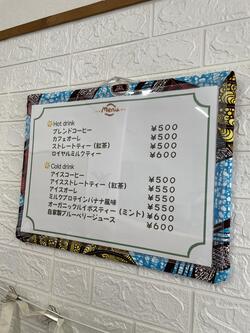 Menu
Hot drink
ブレンドコーヒー ¥500
カフェオーレ ¥500
ストレートティー (紅茶) ¥500
ロイヤルミルクティー ¥600
Cold drink
アイスコーヒー ¥500
アイスストレートティー (紅茶) ¥550
アイスオーレ ¥550
ミルクプロテインバナナ風味 ¥550
オーガニックルイボスティー (ミント) ¥600
自家製ブルーベリージュース ¥600